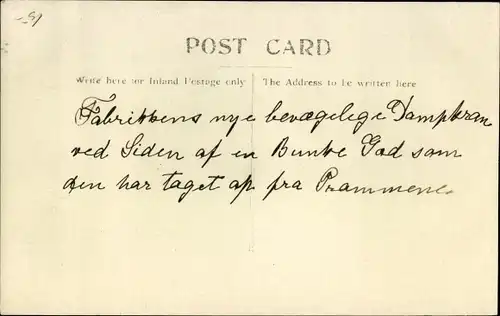 POST CARD
Write here for Inland Postage only
The Address to be written here
Fabrikkens nye bevægelige Dampkran
ved Siden af en Bunke God som
den har taget op fra Prammene